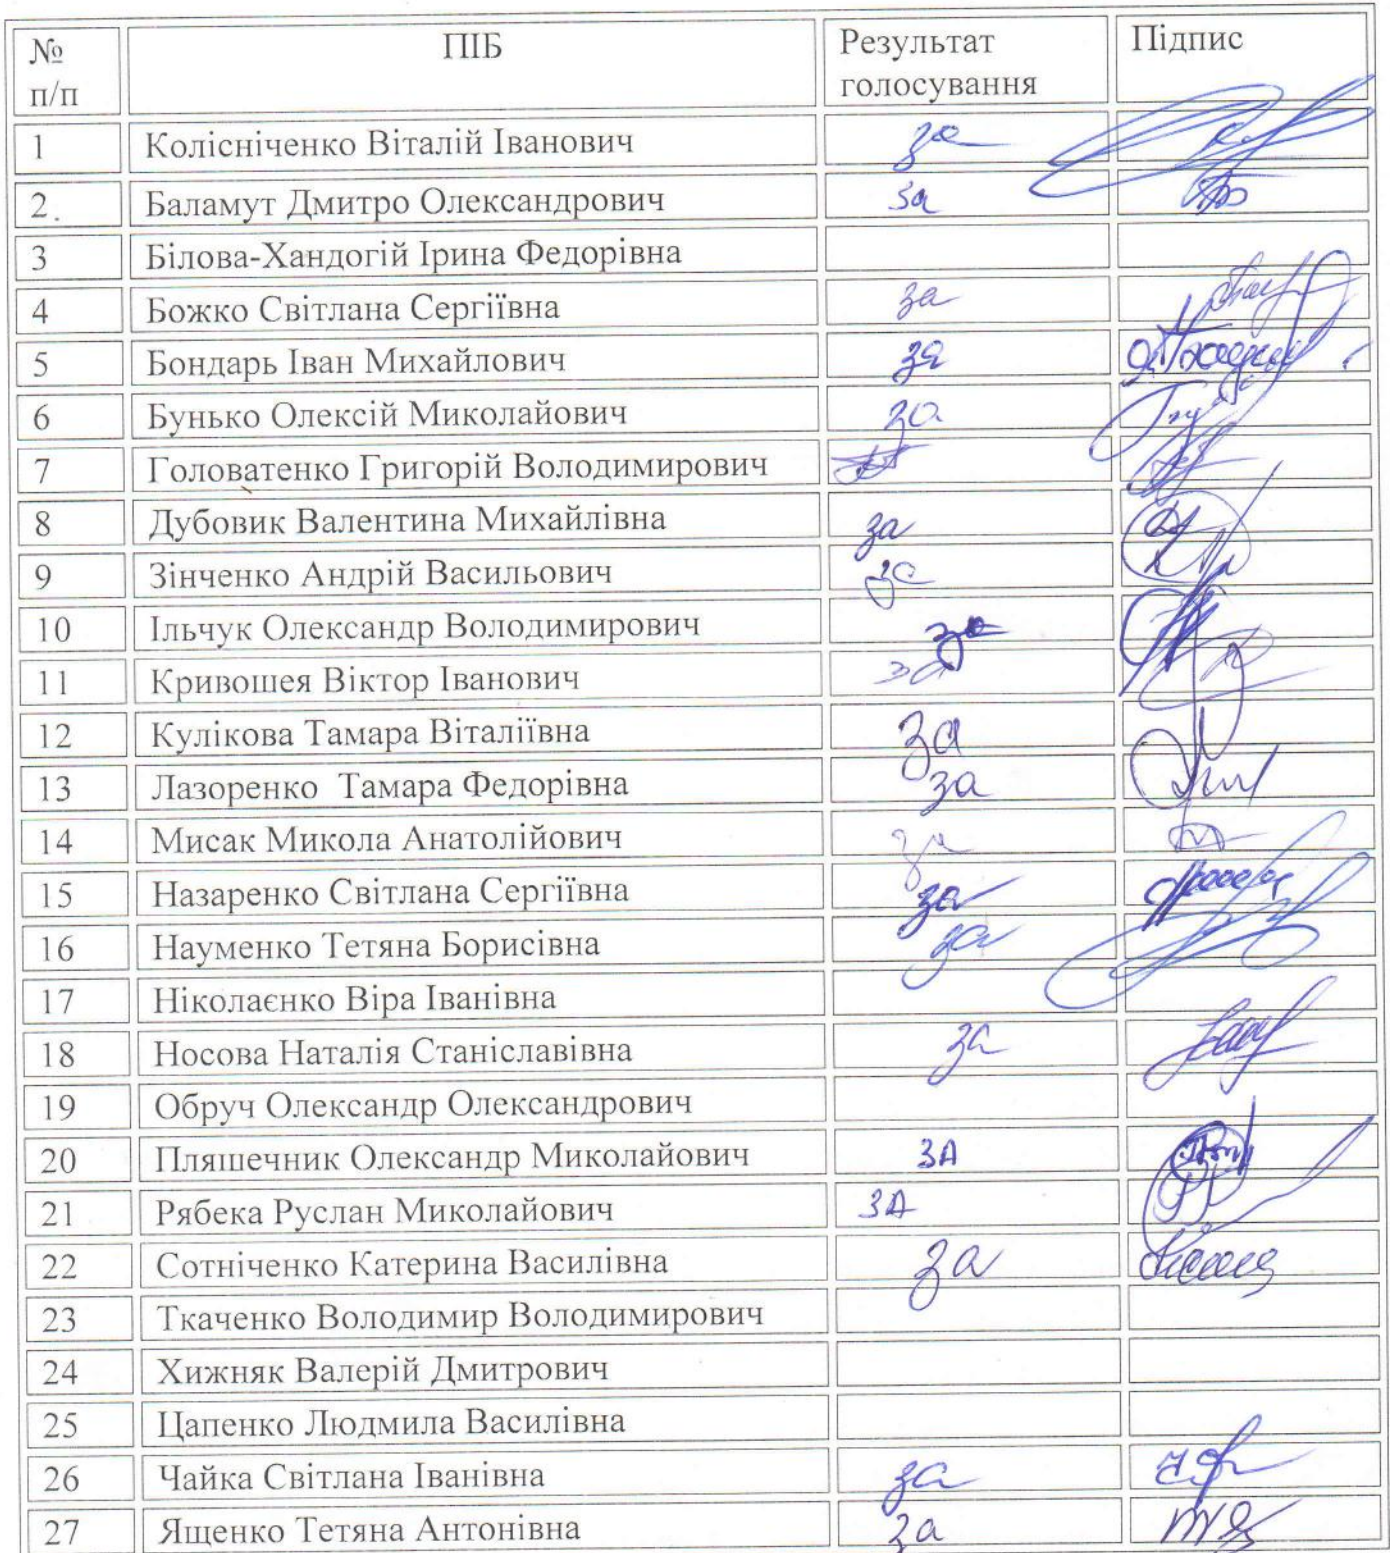 № п/п ПІБ Результат голосування Підпис
1 Колісніченко Віталій Іванович за
2. Баламут Дмитро Олександрович за
3 Білова-Хандогій Ірина Федорівна
4 Божко Світлана Сергіївна за
5 Бондарь Іван Михайлович за
6 Бунько Олексій Миколайович за
7 Головатенко Григорій Володимирович
8 Дубовик Валентина Михайлівна за
9 Зінченко Андрій Васильович за
10 Ільчук Олександр Володимирович за
11 Кривошея Віктор Іванович за
12 Кулікова Тамара Віталіївна за
13 Лазоренко Тамара Федорівна за
14 Мисак Микола Анатолійович за
15 Назаренко Світлана Сергіївна за
16 Науменко Тетяна Борисівна за
17 Ніколаєнко Віра Іванівна
18 Носова Наталія Станіславівна за
19 Обруч Олександр Олександрович
20 Пляшечник Олександр Миколайович ЗА
21 Рябека Руслан Миколайович ЗА
22 Сотніченко Катерина Василівна за
23 Ткаченко Володимир Володимирович
24 Хижняк Валерій Дмитрович
25 Цапенко Людмила Василівна
26 Чайка Світлана Іванівна за
27 Ященко Тетяна Антонівна за